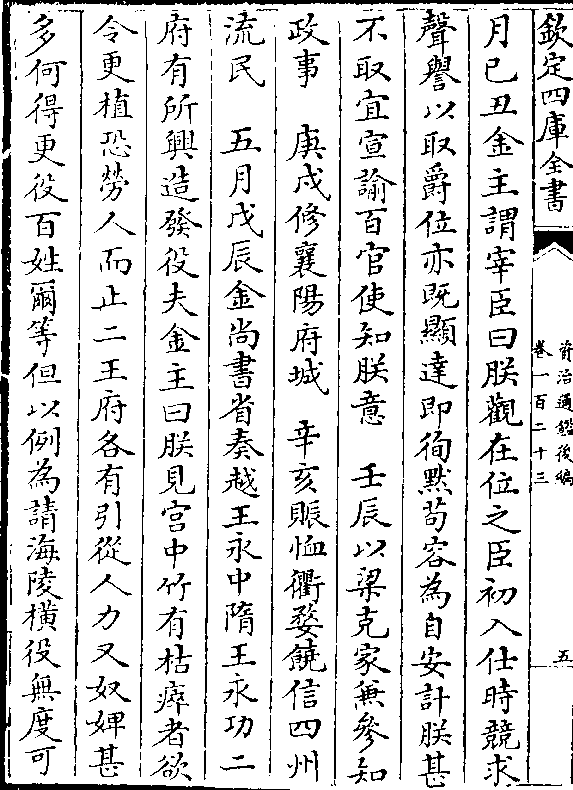 欽定四庫全書
資治通鑑後編
卷一百二十三
五
月己丑金主謂宰臣曰朕觀在位之臣初入仕時競求
聲譽以取爵位亦既顯達即徇黙苟容為自安計朕甚
不取宜宣諭百官使知朕意　壬辰以梁克家兼參知
政事　庚戌修襄陽府城　辛亥賑恤衢婺饒信四州
流民　五月戊辰金尚書省奏越王永中隋王永功二
府有所興造發役夫金主曰朕見宮中竹有枯瘁者欲
令更植恐勞人而止二王府各有引從人力又奴婢甚
多何得更役百姓爾等但以例為請海陵橫役無度可